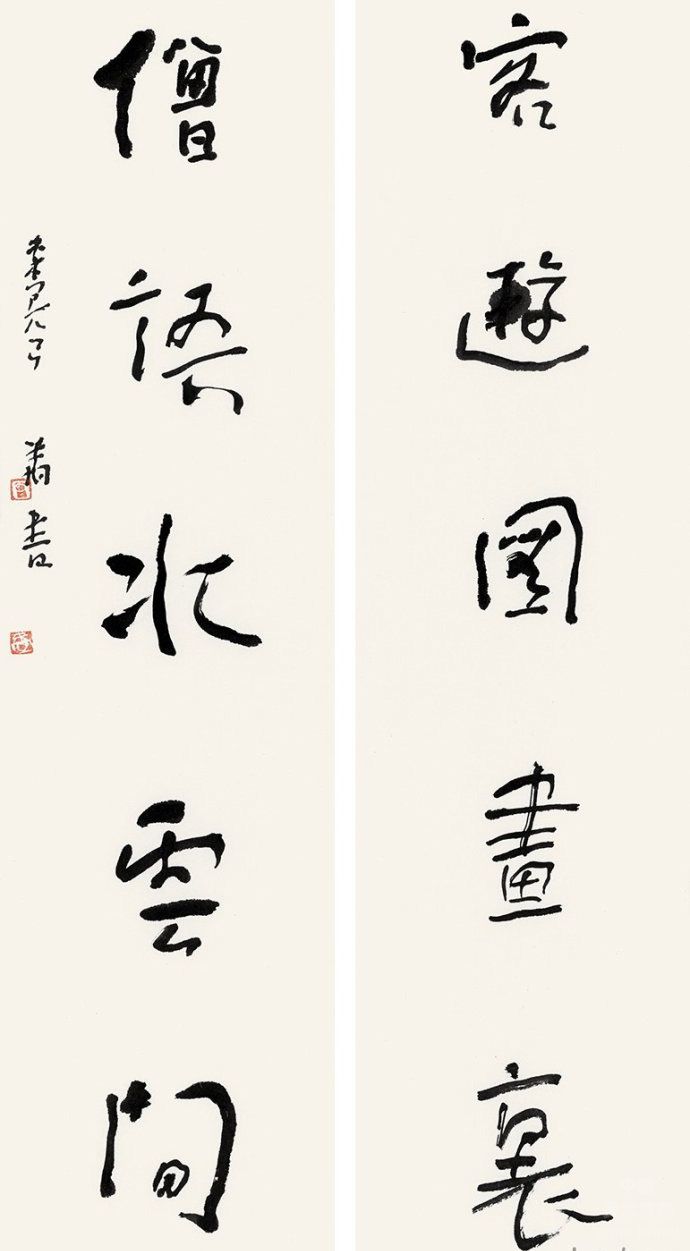 客遊圖畫裏
僧語水雲間